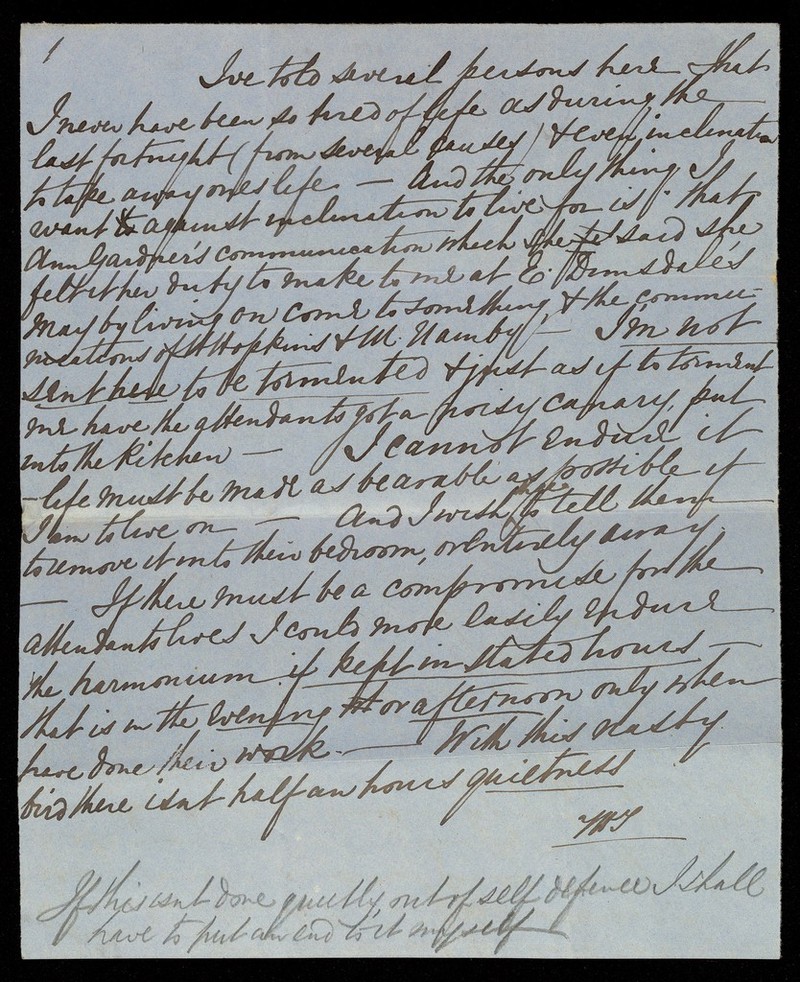 1
I've told several persons here that
I never have been so tired of life as during the
last fortnight (from several causes) & even inclination
to take away ones life. — And the only thing I
want to against inclination to live for is: that
Ann Gardner's communication which she said she
felt it her duty to make to me at E. Dimsdale's
may by living on come to something & the commu-
nications of W Hopkins & M. Namby — I'm not
sent here to be tormented & just as if to torment
me have the attendants got a noisy canary, put
into the kitchen — I cannot endure it
— life must be made as bearable as possible if
I am to live on — And I wish to tell them
to remove it into their bedroom, or entirely away.
— If there must be a compromise for the
attendants lives I could more easily endure
the harmonium if kept in stated hours —
that is in the evening or afternoon only when
have done their work. — With this nasty
bird there isnt half an hours quietness
If this isnt done quietly out of self defence I shall
have to put an end to it myself